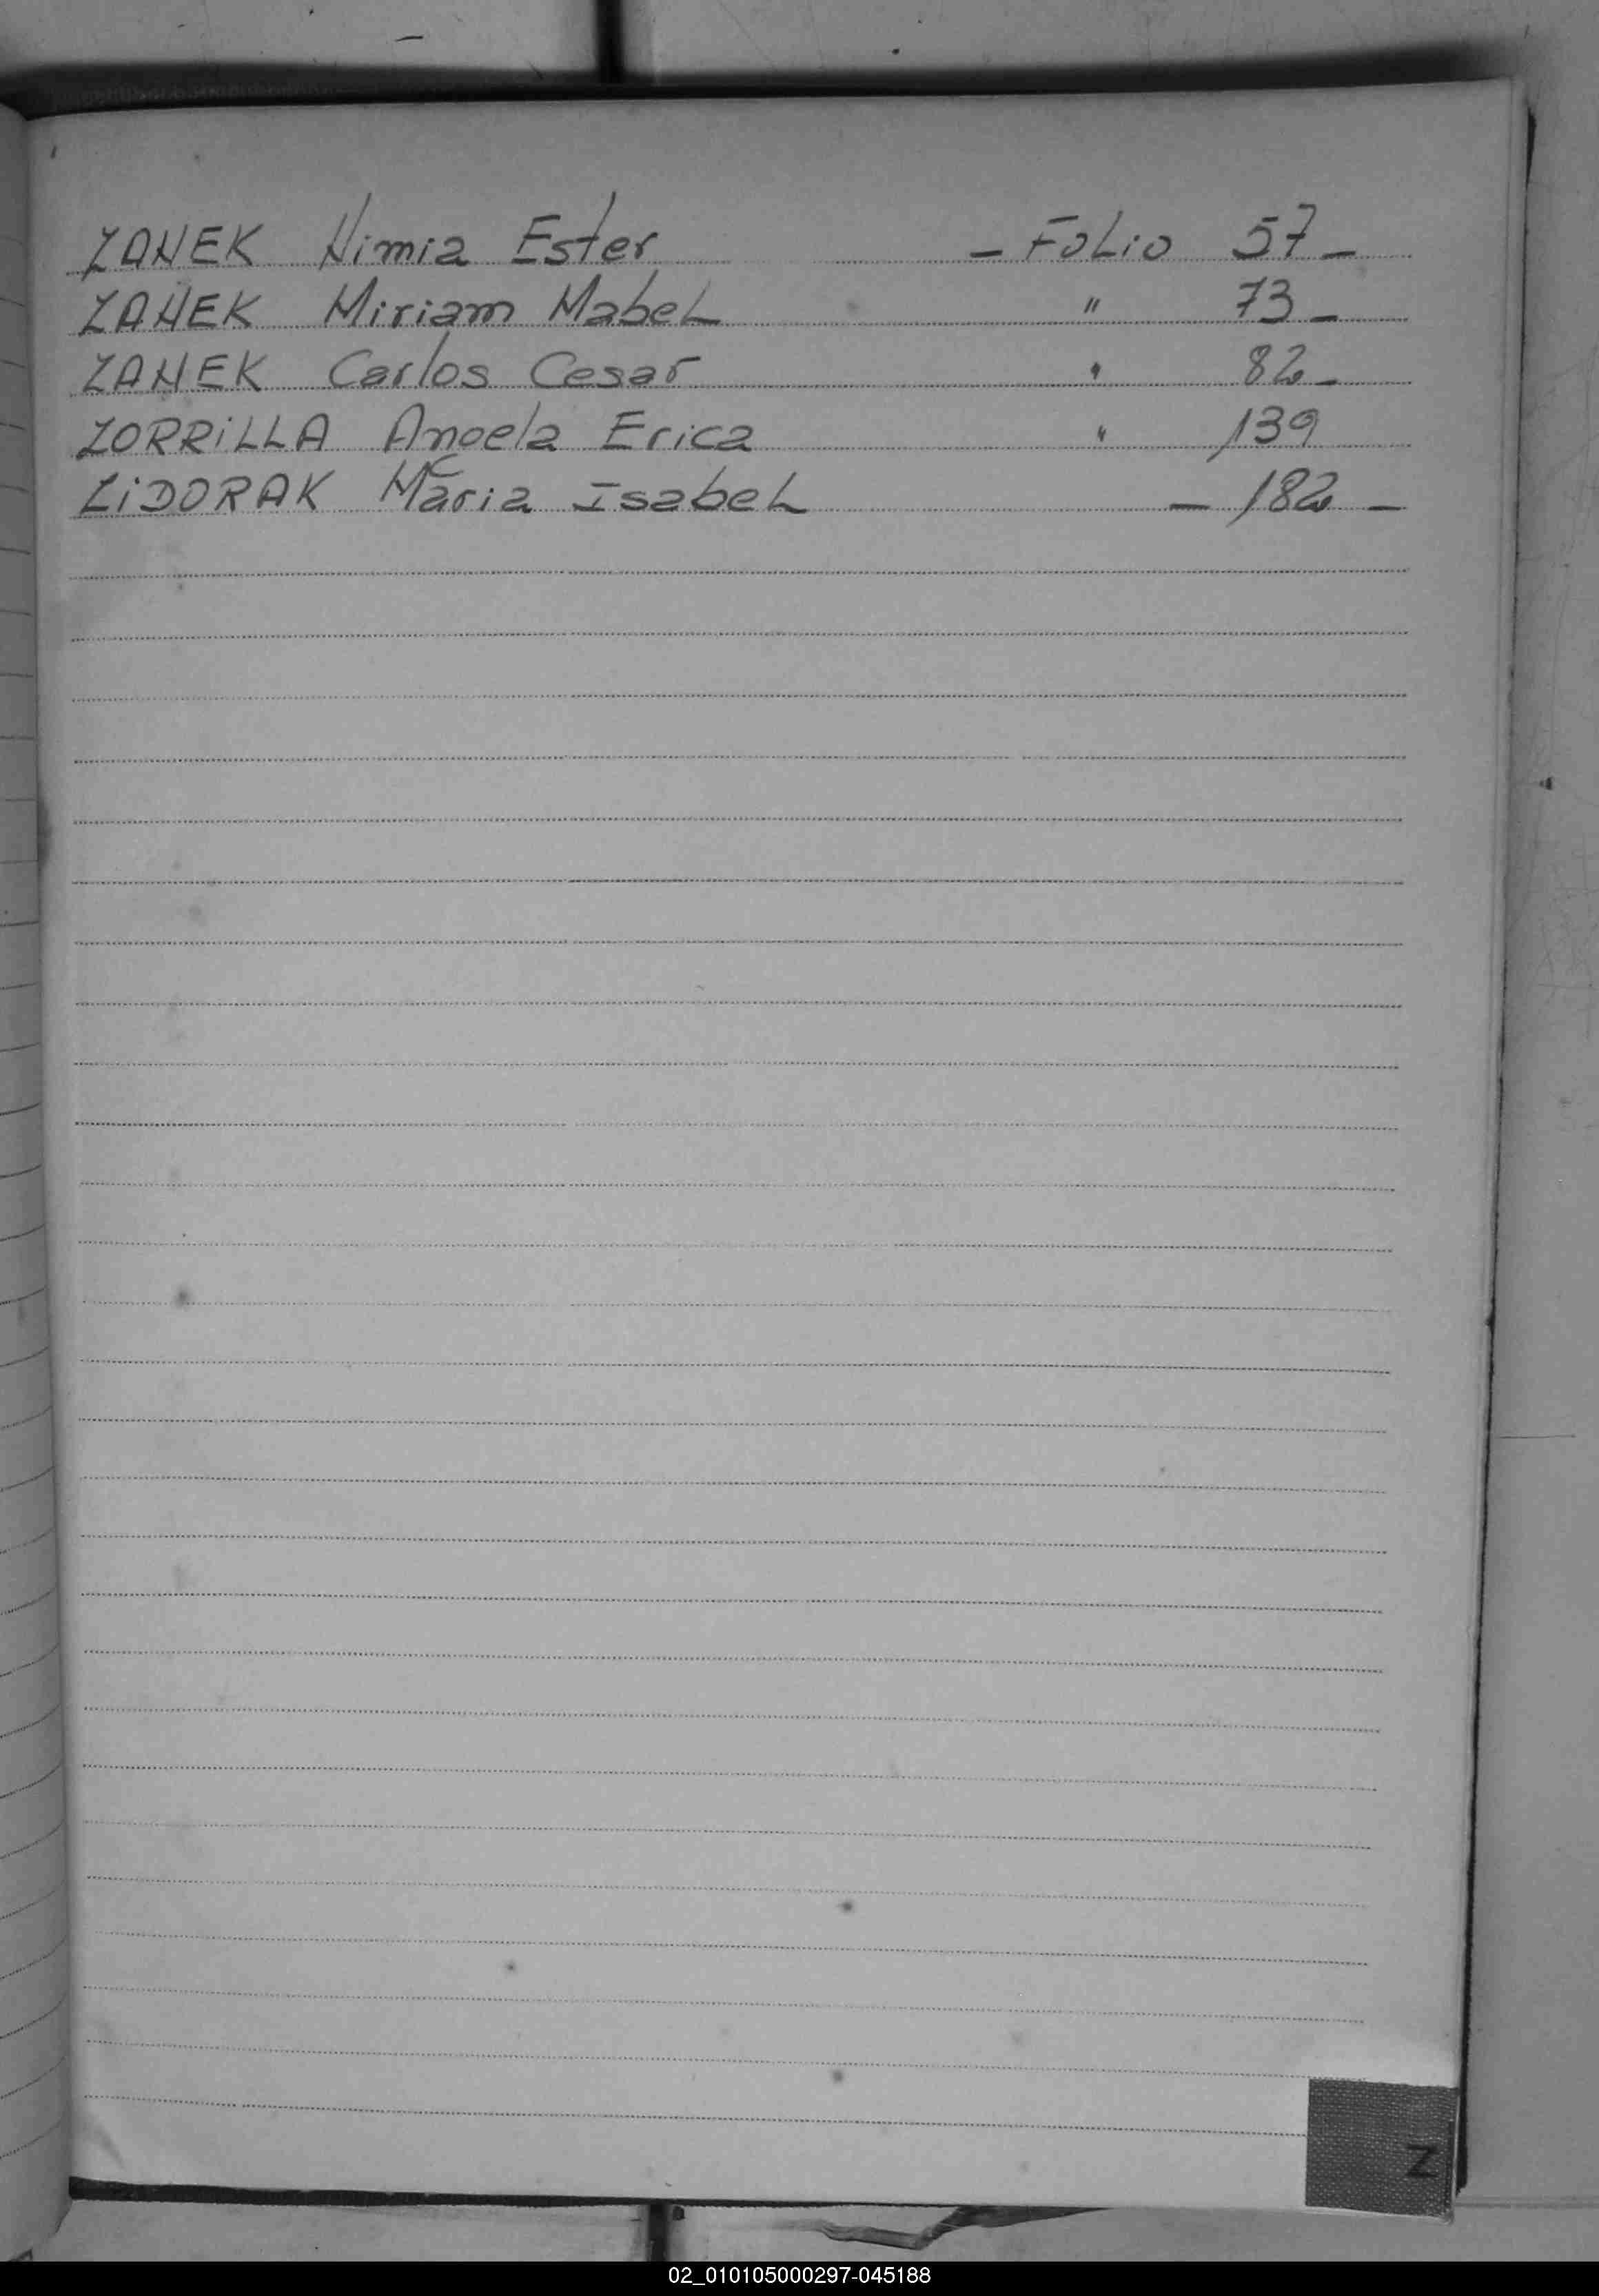 ZANEK Nimia Ester - Folio 57 -
ZANEK Miriam Mabel " 73 -
ZANEK Carlos Cesar " 82 -
ZORRILLA Angela Erica " 139
ZIDORAK Maria Isabel - 182 -
Z
02_010105000297-045188